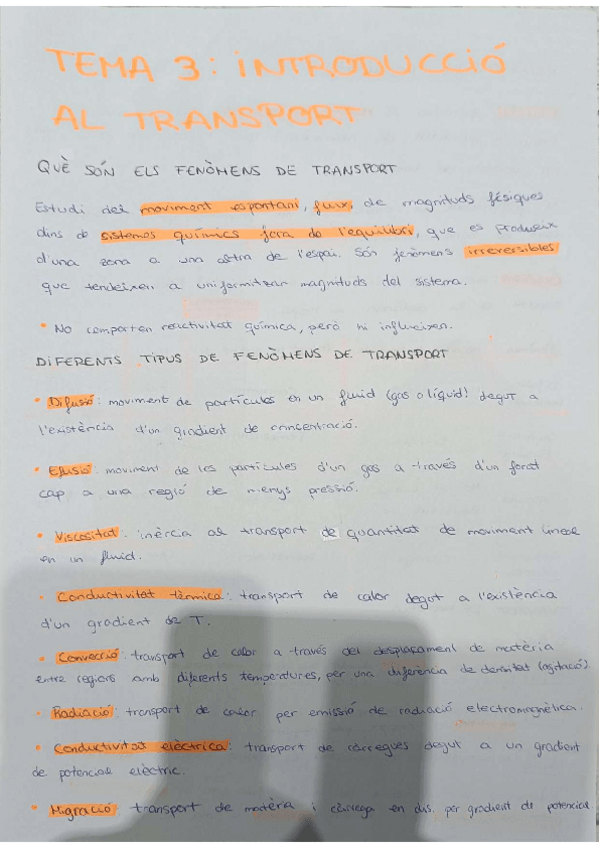 TEMA 3: INTRODUCCIÓ
AL TRANSPORT
QUÈ SÓN ELS FENÒMENS DE TRANSPORT
Estudi del moviment espontani, flux, de magnituds físiques
dins de sistemes químics fora de l'equilibri, que es produeix
d'una zona a una altra de l'espai. Són fenòmens irreversibles
que tendeixen a uniformitzar magnituds del sistema.
• No comporten reactivitat química, però hi influeixen.
DIFERENTS TIPUS DE FENÒMENS DE TRANSPORT
• Difusió: moviment de partícules en un fluid (gas o líquid) degut a
l'existència d'un gradient de concentració.
• Efusió: moviment de les partícules d'un gas a través d'un forat
cap a una regió de menys pressió.
• Viscositat: inèrcia al transport de quantitat de moviment lineal
en un fluid.
• Conductivitat tèrmica: transport de calor degut a l'existència
d'un gradient de T.
• Convecció: transport de calor a través del desplaçament de matèria
entre regions amb diferents temperatures, per una diferència de densitat (agitació)
• Radiació: transport de calor per emissió de radiació electromagnètica.
• Conductivitat elèctrica: transport de càrregues degut a un gradient
de potencial elèctric.
• Migració: transport de matèria i càrrega en dis. per gradient de potencial.